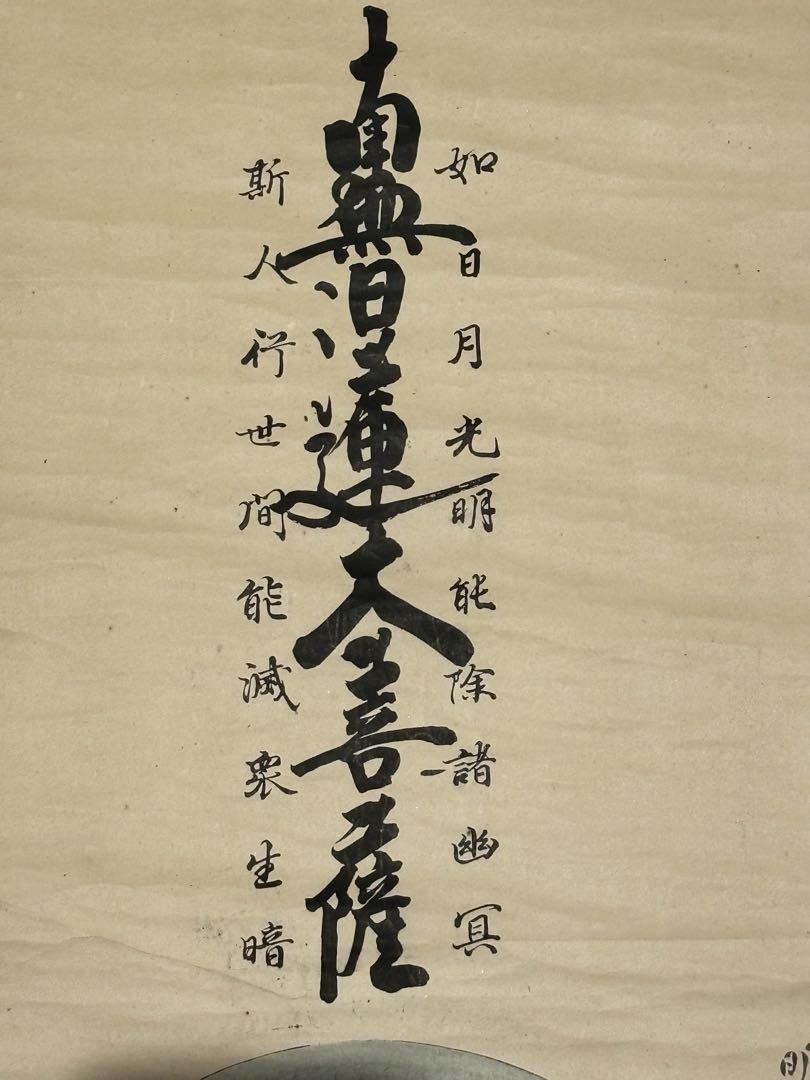 如日月光明能除諸幽冥
南無日蓮大菩薩
斯人行世間能滅衆生暗